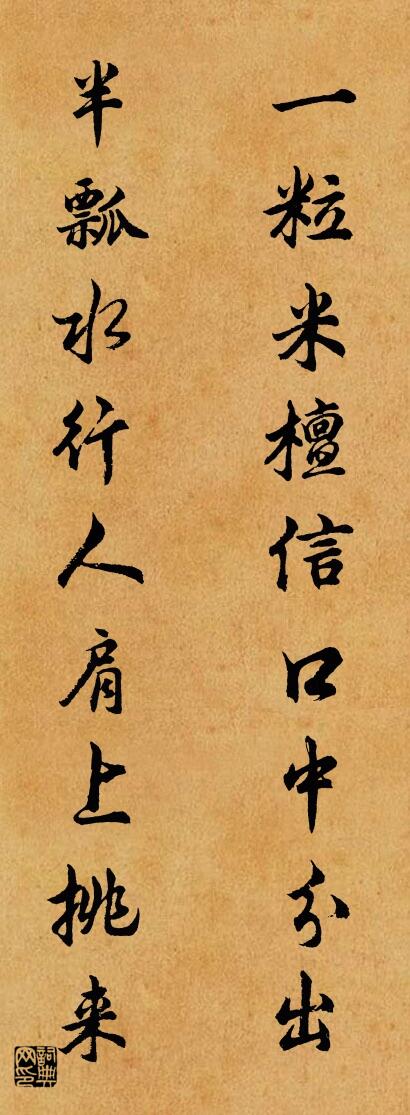 一粒米檀信口中分出
半瓢水行人肩上挑来
詞典网印